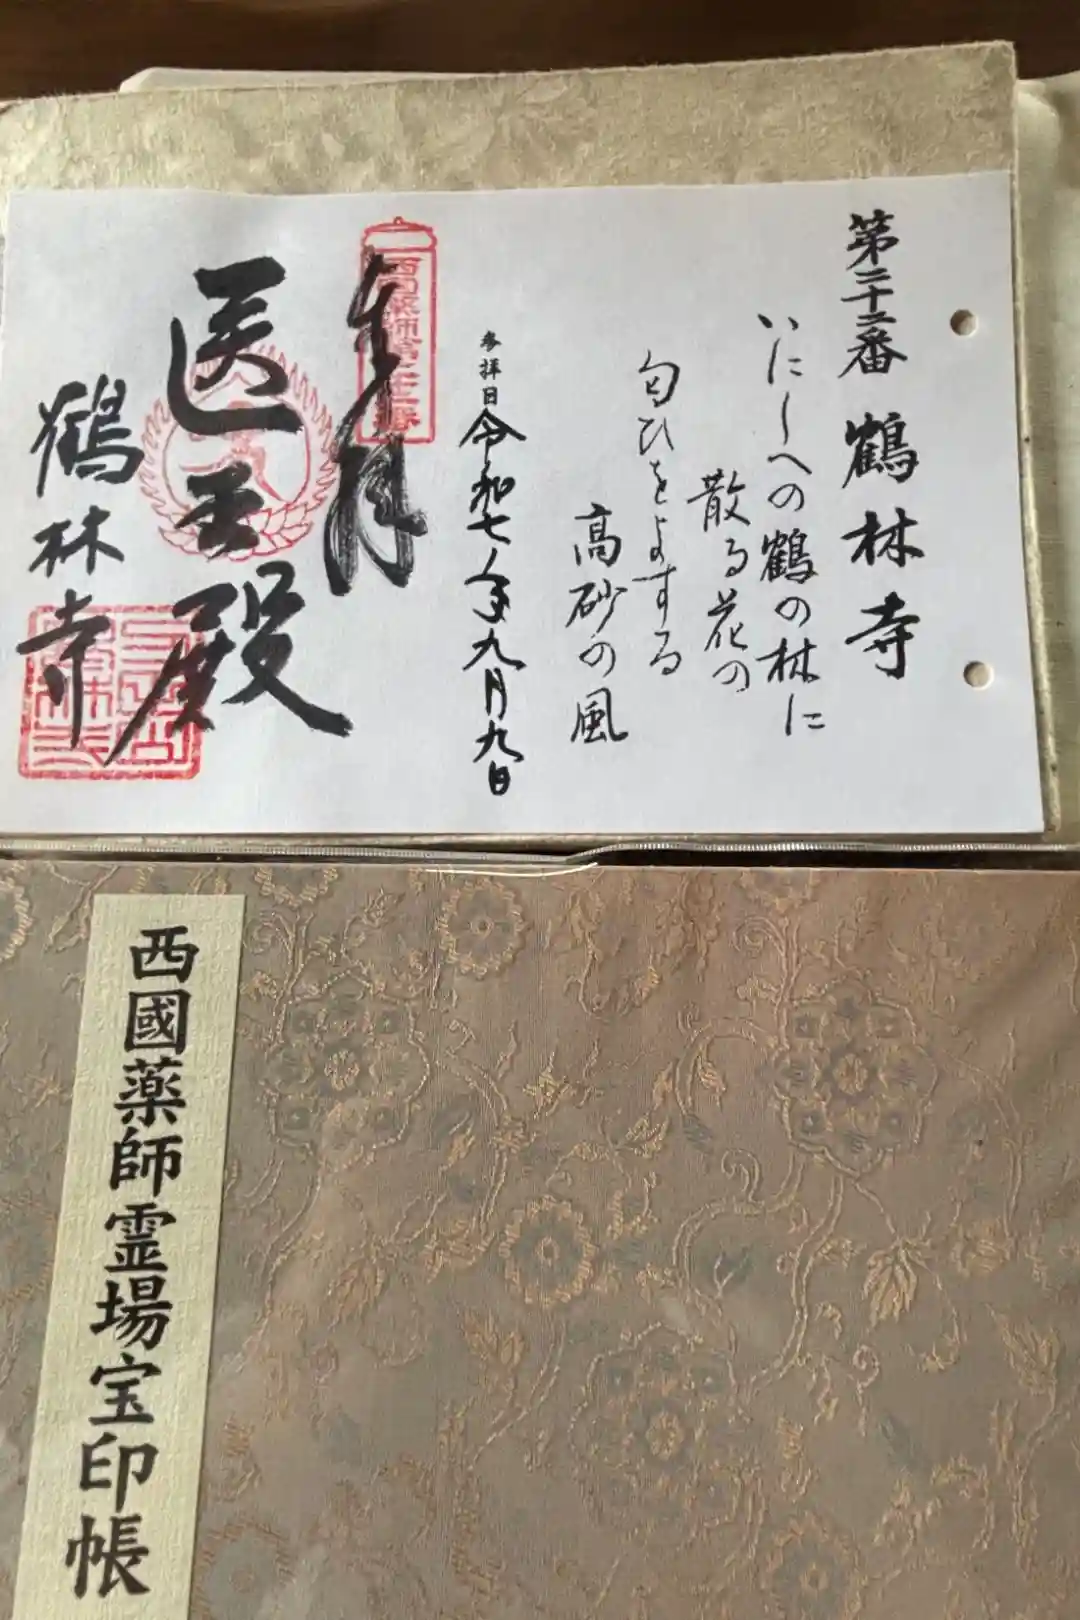 第二十二番 鶴林寺
いにしへの鶴の林に
散る花の
匂ひをよする
高砂の風
参拝日令和七年九月九日
奉拝
医王殿
鶴林寺
西國薬師霊場宝印帳